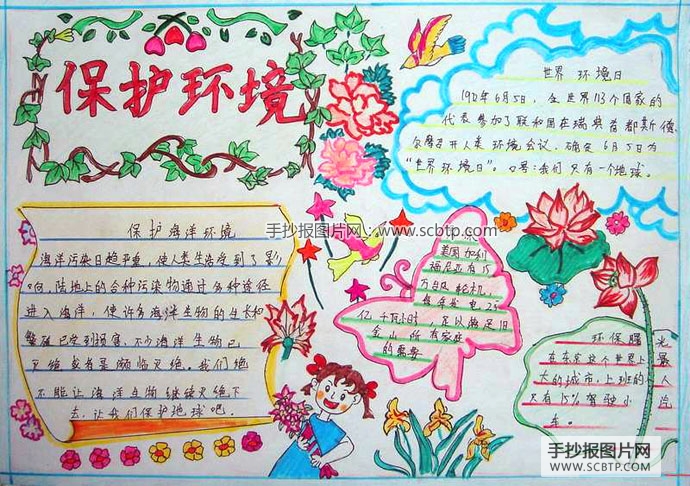 保护环境
世界 环境日
1972年6月5日，全世界113个国家的
代表参加了联和国在瑞典首都斯德
尔摩召开人类环境会议，确定6月5日为
“世界环境日”。口号：我们只有一个地球。
手抄报图片网：www.scbtp.com
保护海洋环境
海洋污染日趋严重，使人类生活受到了影
响，陆地上的各种污染物通过各种途径
进入海洋，使许多海洋生物的生长和
繁殖已受到损害，不少海洋生物已
灭绝或者是濒临灭绝。我们绝
不能让海洋生物继续灭绝下
去，让我们保护地球吧。
美国加利
福尼亚有15
万台轮机
每年发电24
亿千瓦小时
足以满足旧
金山所有家庭
的需要
环保曙光
在东京这个世界上最
大的城市，上班的人
只有15%驾驶小汽
车。
手抄报图片网
WWW.SCBTP.COM